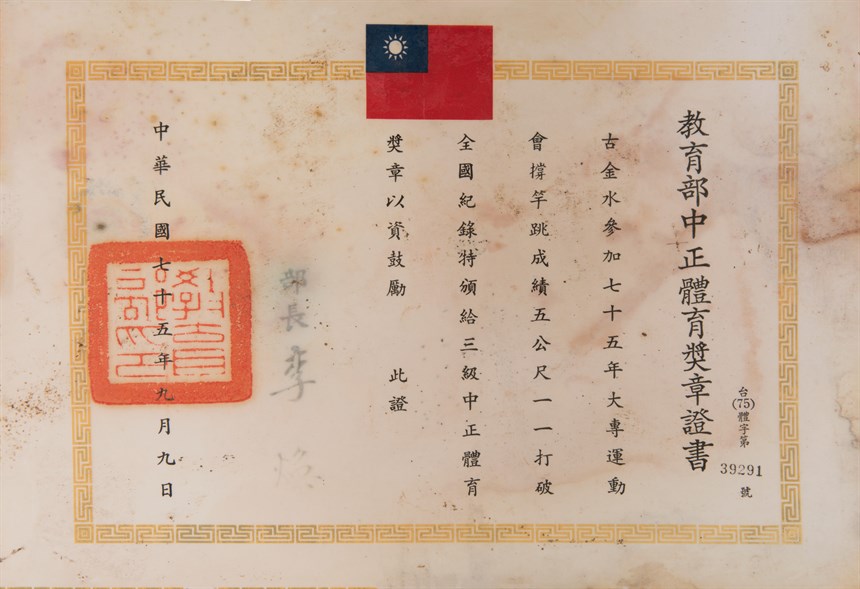 教育部中正體育獎章證書
台(75)體字第39291號
古金水參加七十五年大專運動
會撐竿跳成績五公尺一一打破
全國紀錄特頒給三級中正體育
獎章以資鼓勵 此證
部長李煥
中華民國七十五年九月九日